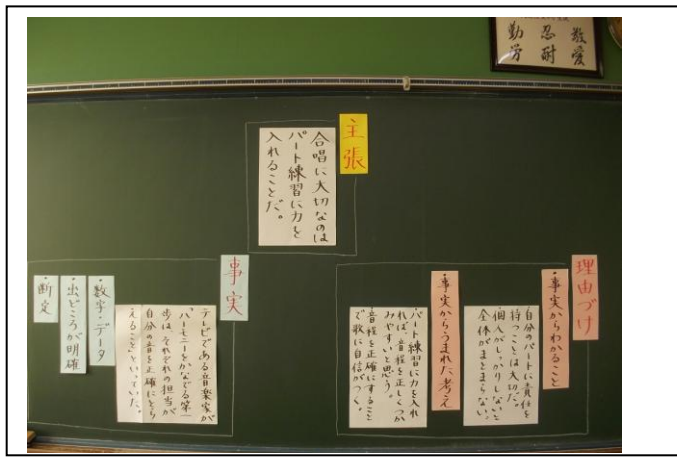 敬愛
忍耐
勤労
主張
合唱に大切なのは
パート練習に力を
入れることだ。
理由づけ
・事実からわかること
自分のパートに責任を
持つことは大切だ。
個人がしっかりしないと
全体がまとまらない。
・事実からうまれた考え
パート練習に力を入れ
れば、音程を正しくつか
みやすいと思う。
音程を正確にすること
で歌に自信がつく。
事実
テレビである音楽家が
「ハーモニーをかなでる第一
歩は、それぞれの担当が
自分の音を正確にとら
えること」といっていた。
・数字・データ
・出どころが明確
・断定